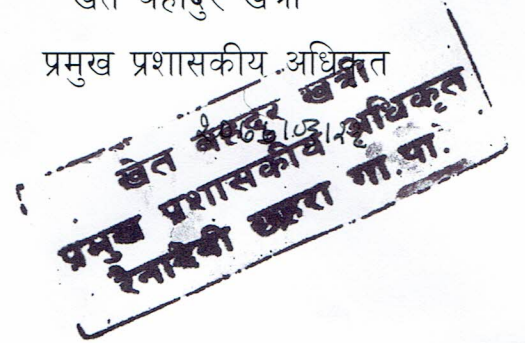 खेत बहादुर खत्री
प्रमुख प्रशासकीय अधिकृत
खेत बहादुर खत्री
प्रमुख प्रशासकीय अधिकृत
रैनादेवी छहरा गा.पा.